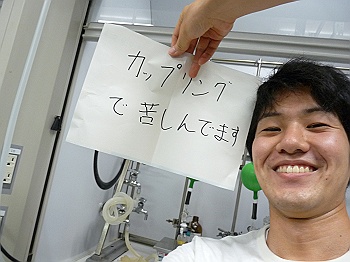 カップリング
で苦しんでます